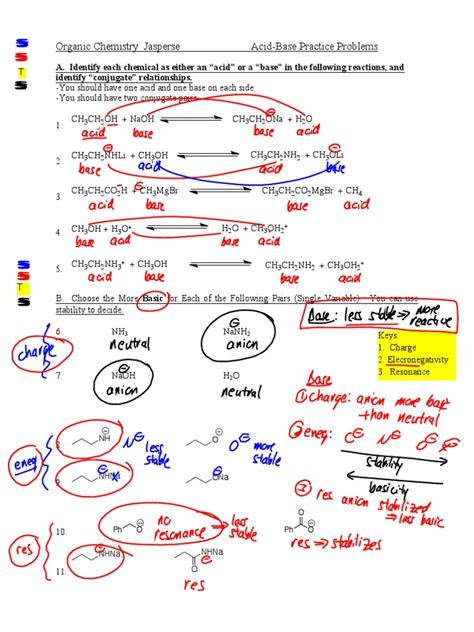 S
S
T
S
Organic Chemistry Jasperse Acid-Base Practice Problems
A. Identify each chemical as either an “acid” or a “base” in the following reactions, and
identify “conjugate” relationships.
-You should have one acid and one base on each side
-You should have two conjugate pairs
1. CH3CH2OH + NaOH CH3CH2ONa + H2O
acid base base acid
2. CH3CH2NHLi + CH3OH CH3CH2NH2 + CH3OLi
base acid acid base
3. CH3CH2CO2H + CH3MgBr CH3CH2CO2MgBr + CH4
acid base base acid
4. CH3OH + H3O+ H2O + CH3OH2+
base acid base acid
5. CH3CH2NH3+ + CH3OH CH3CH2NH2 + CH3OH2+
acid base base acid
S
S
T
S
B. Choose the More Basic for Each of the Following Pairs (Single Variable). You can use
stability to decide.
Base: less stable ⇒ more reactive
Keys:
1. Charge
2. Elecronegativity
3. Resonance
charge
6. NH3 NaNH2
neutral anion
7. NaOH H2O
anion neutral
Base
① charge: anion more basic
than neutral
② eneg: C⊖ N⊖ O⊖ F⊖
stability
basicity
eneg
8. NH N⊖ less stable O O⊖ more stable
9. NHNa ONa
③ res anion stabilized
⇒ less basic
res
10. Ph O no resonance ⇒ less stable Ph O O
res ⇒ stabilizes
11. NHNa O NHNa
res